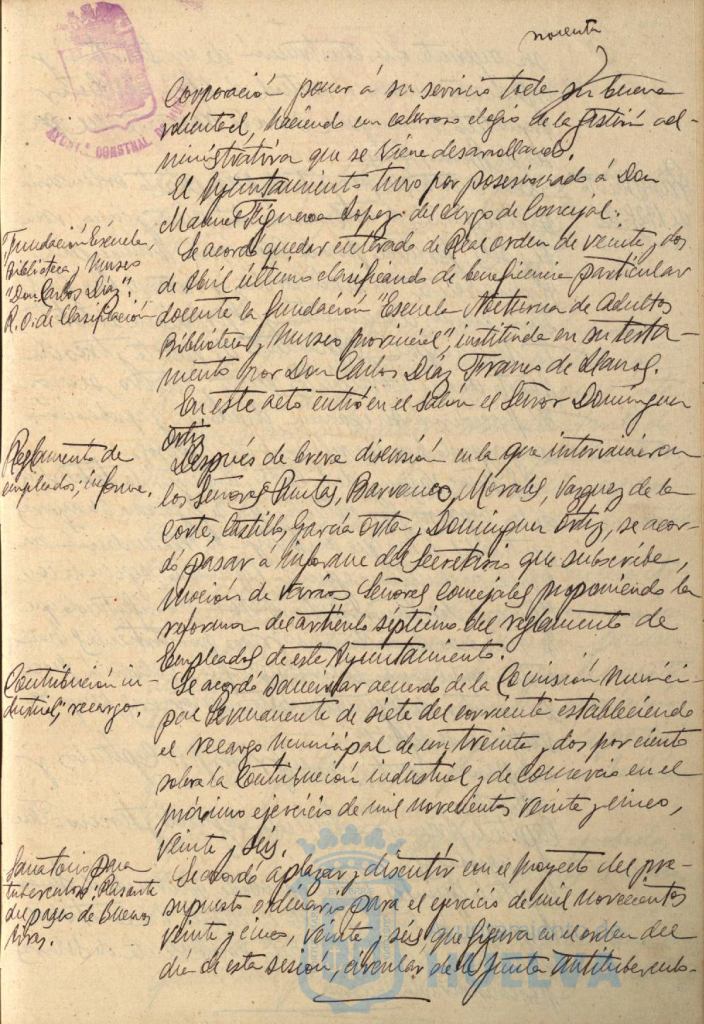 noventa
AYUNT. CONSTNAL
Corporación poner á su servicio toda su buena
voluntad, haciendo un caluroso elogio de la gestión ad-
ministrativa que se viene desarrollando.
El Ayuntamiento tuvo por posesionado á Don
Manuel Figueroa Lopez del cargo de Concejal.
Fundación Escuela,
Biblioteca y Museo
"Don Carlos Díaz".
R.O. de clasificación
Se acordó quedar enterado de Real orden de veinte y dos
de Abril último clasificando de beneficencia particular
docente la fundación "Escuela Nocturna de Adultos
Biblioteca y Museo provincial", instituida en su testa-
mento por Don Carlos Díaz Franco de Llanos.
En este acto entró en el Salón el Señor Dominguez
Ortiz
Reglamento de
empleados; informe.
Después de breve discusión en la que intervinieron
los Señores Puntas, Barranco, Morales, Vazquez de la
Corte, Castillo, García Orta y Dominguez Ortiz, se acor-
dó pasar á informe del Secretario que subscribe,
moción de varios Señores Concejales proponiendo la
reforma del artículo séptimo del reglamento de
Empleados de este Ayuntamiento.
Contribución in-
dustrial; recargo.
Se acordó sancionar acuerdo de la Comisión Munici-
pal permanente de siete del corriente estableciendo
el recargo municipal de un treinta y dos por ciento
sobre la Contribución industrial y de comercio en el
próximo ejercicio de mil novecientos veinte y cinco,
veinte y seis.
Sanatorio para
tuberculosos:
del paseo de Buenos
Aires.
Se acordó aplazar y discutir con el proyecto del pre-
supuesto ordinario para el ejercicio de mil novecientos
veinte y cinco, veinte y seis que figura en el orden del
día de esta sesión, circular de la Junta Antituberculo-
HUELVA